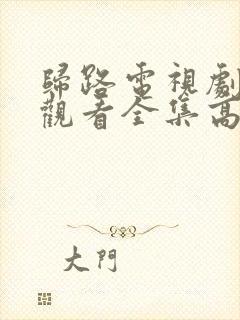 歸路電視劇
觀看全集高
大門